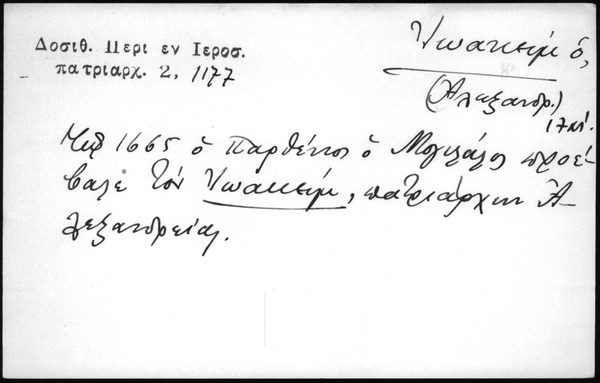 Δοσιθ. Περι εν Ιεροσ.
πατριαρχ. 2, 1177
Ἰωακειμ ὁ,
(Ἀλεξανδρ.)
17 αἰ.
1665 ὁ Παρθένιος ὁ Μογιλάλος προέ-
βαλε τὸν Ἰωακείμ, πατριάρχην Ἀ-
λεξανδρείας.